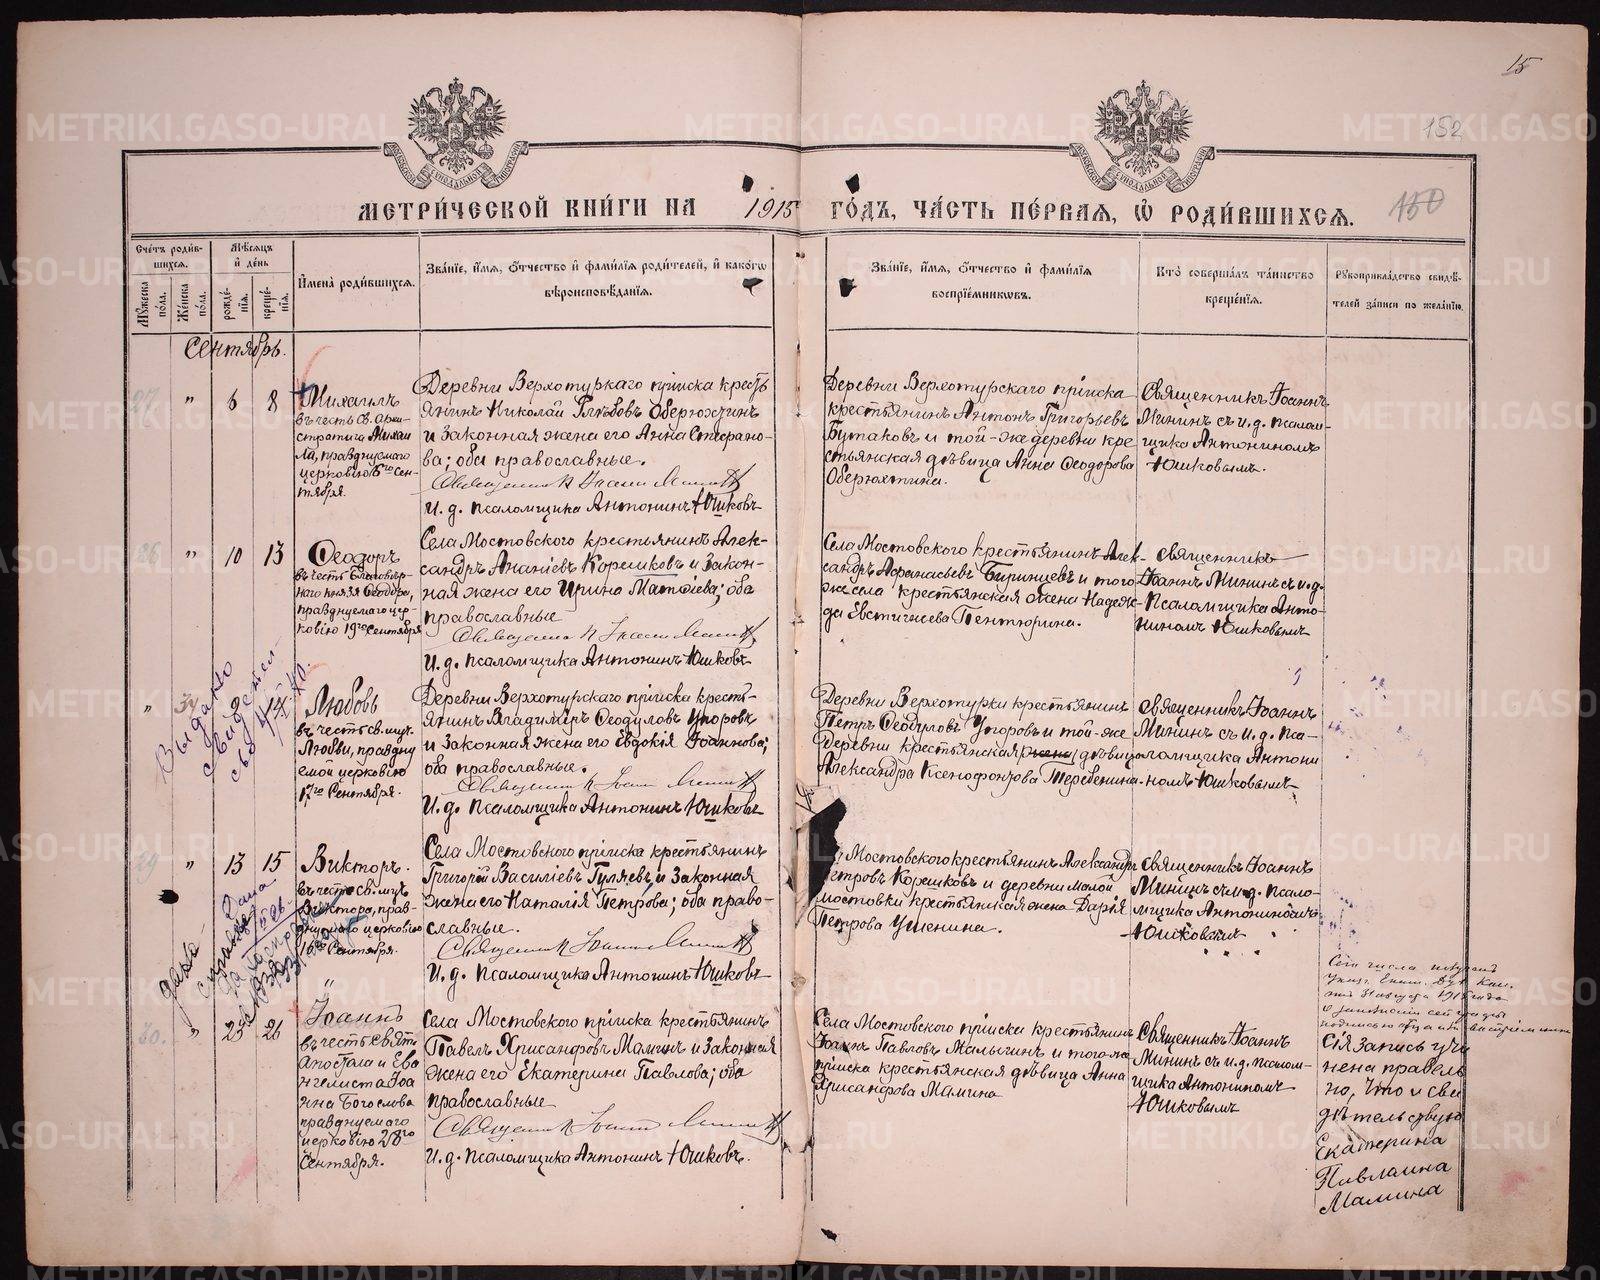 15
152
150
МЕТРИ́ЧЕСКОЙ КНИ́ГИ НА 1915 ГО́ДЪ, ЧА́СТЬ ПЕ́РВАЯ, Ѡ РОДИ́ВШИХСЯ.
Сче́тъ роди́в-
шихся.
Мѣ́сяцъ
и де́нь
Му́жеска
по́ла.
Же́нска
по́ла.
рожде́-
нія.
креще́-
нія.
Имена̀ роди́вшихся.
Зва́ніе, и́мя, о́тчество и фами́лія роди́телей, и како́гѡ
вѣроисповѣ́данія.
Зва́ніе, и́мя, о́тчество и фами́лія
воспрiе́мниковъ.
Кто̀ соверша́лъ та́инство
креще́нія.
Рукоприкла́дство свидѣ́-
телей за́писи по жела́нію.
Сентябрь.
27 " 6 8
Михаилъ
въ честь Св. Архи-
стратига Михаи
ла, празднуемаго
церковію 6го Сен-
тября.
Деревни Верхотурскаго пріиска кресть
янинъ Николай Глѣбовъ Оберюхтинъ
и законная жена его Анна Стефано-
ва; оба православные.
Священникъ Іоаннъ Мининъ
И. д. псаломщика Антонинъ Юшковъ
Деревни Верхотурскаго пріиска
крестьянинъ Антонъ Григорьевъ
Бутаковъ и той-же деревни кре
стьянская дѣвица Анна Ѳеодорова
Оберюхтина.
Священникъ Іоаннъ
Мининъ съ и.д. псалом-
щика Антониномъ
Юшковымъ.
28 " 10 13
Ѳеодоръ
въ честь Благовѣр-
наго князя Ѳеодора,
празднуемаго цер-
ковію 19го Сентября
Села Мостовского крестьянинъ Алек-
сандръ Ананіевъ Корешковъ и закон-
ная жена его Ирина Матѳіева; оба
православные
Священникъ Іоаннъ Мининъ
И. д. псаломщика Антонинъ Юшковъ
Села Мостовского крестьянинъ Алек-
сандръ Афанасьевъ Биринцевъ и того
же села крестьянская жена Надеж-
да Евстигнеева Пентюрина.
Священникъ
Іоаннъ Мининъ съ и.д.
псаломщика Анто-
ниномъ Юшковымъ
Выдано
свидетел-
сво
" 34
Любовь
въ честь св. муч.
Любви, праздну
емой церковію
17го Сентября.
Деревни Верхотурскаго пріиска кресть-
янинъ Владиміръ Ѳеодуловъ Упоровъ
и законная жена его Евдокія Іоаннова;
оба православные.
Священникъ Іоаннъ Мининъ
И. д. псаломщика Антонинъ Юшковъ
Деревни Верхотурки крестьянинъ
Петръ Ѳеодуловъ Упоровъ и той-же
деревни крестьянская (жена) дѣвица
Александра Ксенофонтова Теребенина.
Священникъ Іоаннъ
Мининъ съ и. д. пса-
ломщика Антони
номъ Юшковымъ
29 " 13 15
Викторъ.
въ честь св. муч.
Виктора, праз-
днуемаго церковію
16го Сентября.
Села Мостовского пріиска крестьянинъ
Григорій Василіевъ Гуляевъ и законная
жена его Наталія Петрова; оба право-
славные.
Священникъ Іоаннъ Мининъ
И. д. псаломщика Антонинъ Юшковъ
Мостовского крестьянинъ Александръ
Петровъ Корешковъ и деревни малой
мостовки крестьянская жена Дарія
Петрова Ушенина.
Священникъ Іоаннъ
Мининъ съ и.д. псало-
мщика Антониномъ
Юшковымъ
дана
справка
30. " 25 26
Іоаннъ
въ честь Свят.
Апостола и Ева
нгелиста Іоа
нна Богослова
празднуемаго
церковію 28го
Сентября.
Села Мостовского пріиска крестьянинъ
Павелъ Хрисанфовъ Мамин и законная
жена его Екатерина Павлова; оба
православные
Священникъ Іоаннъ Мининъ
И. д. псаломщика Антонинъ Юшковъ.
Села Мостовского пріиска крестьянинъ
Іоаннъ Павловъ Малыгинъ и того-же
пріиска крестьянская дѣвица Анна
Хрисанфова Мамина
Священникъ Іоаннъ
Мининъ съ и.д. псалом-
щика Антониномъ
Юшковымъ
Сія запись учи
нена правель
но, что и сви
дѣтельствую
Екатерина
Павлаина
Мамина